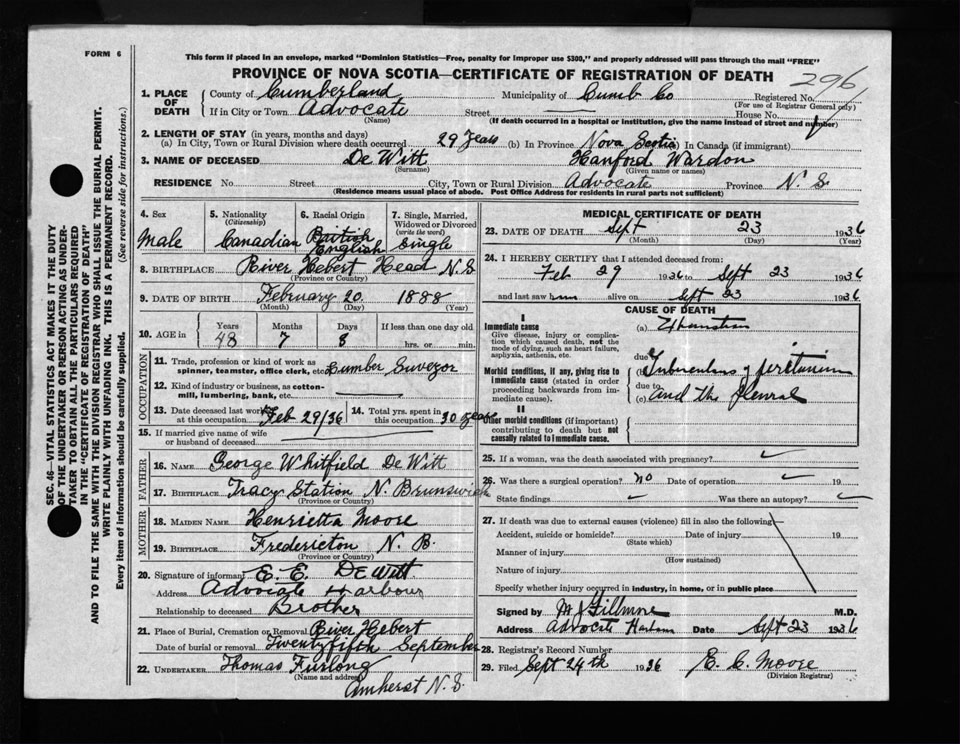 FORM 6
This form if placed in an envelope, marked "Dominion Statistics—Free, penalty for improper use $300," and properly addressed will pass through the mail "FREE"
PROVINCE OF NOVA SCOTIA—CERTIFICATE OF REGISTRATION OF DEATH
296
1. PLACE OF DEATH County of Cumberland Municipality of Cumb Co Registered No.
(For use of Registrar General only)
If in City or Town Advocate Street House No.
(Name) (If death occurred in a hospital or institution, give the name instead of street and number)
2. LENGTH OF STAY (in years, months and days)
(a) In City, Town or Rural Division where death occurred 29 Years (b) In Province Nova Scotia In Canada (if immigrant)
3. NAME OF DECEASED De Witt Hanford Wardon
(Surname) (Given name or names)
RESIDENCE No. Street City, Town or Rural Division Advocate Province N. S.
(Residence means usual place of abode. Post Office Address for residents in rural parts not sufficient)
SEC. 46—VITAL STATISTICS ACT MAKES IT THE DUTY
OF THE UNDERTAKER OR PERSON ACTING AS UNDER-
TAKER TO OBTAIN ALL THE PARTICULARS REQUIRED
IN THE "CERTIFICATE OF REGISTRATION OF DEATH"
AND TO FILE THE SAME WITH THE DIVISION REGISTRAR WHO SHALL ISSUE THE BURIAL PERMIT.
WRITE PLAINLY WITH UNFADING INK. THIS IS A PERMANENT RECORD.
Every item of information should be carefully supplied. (See reverse side for instructions.)
4. Sex 5. Nationality 6. Racial Origin 7. Single, Married,
(Citizenship) Widowed or Divorced
(write the word)
Male Canadian British English Single
8. BIRTHPLACE River Hebert Head N.S
(Province or Country)
9. DATE OF BIRTH February 20 1888
(Month) (Day) (Year)
10. AGE in Years Months Days If less than one day old
48 7 8 hrs. or min.
OCCUPATION
11. Trade, profession or kind of work as
spinner, teamster, office clerk, etc. Lumber Suveyor
12. Kind of industry or business, as cotton-
mill, lumbering, bank, etc.
13. Date deceased last worked at this occupation Feb 29/36 14. Total yrs. spent in this occupation 30 years
15. If married give name of wife
or husband of deceased
FATHER
16. NAME George Whitfield De Witt
17. BIRTHPLACE Tracy Station N. Brunswick
(Province or Country)
MOTHER
18. MAIDEN NAME Henrietta Moore
19. BIRTHPLACE Fredericton N. B.
(Province or Country)
20. Signature of informant E. E. DeWitt
Address Advocate Harbour
Relationship to deceased Brother
21. Place of Burial, Cremation or Removal River Hebert
Date of burial or removal Twentyfifth September
22. UNDERTAKER Thomas Furlong
(Name and address)
Amherst N.S.
MEDICAL CERTIFICATE OF DEATH
23. DATE OF DEATH Sept 23 1936
(Month) (Day) (Year)
24. I HEREBY CERTIFY that I attended deceased from:
Feb 29 1936 to Sept 23 1936
and last saw him alive on Sept 23 1936
CAUSE OF DEATH
I
Immediate cause
Give disease, injury or complica-
tion which caused death, not the
mode of dying, such as heart failure,
asphyxia, asthenia, etc.
(a) Exhaustion
due to
Morbid conditions, if any, giving rise to
immediate cause (stated in order
proceeding backwards from im-
mediate cause).
(b) Tuberculous of peritoneum
due to
(c) and the pleural
II
Other morbid conditions (if important)
contributing to death but not
causally related to immediate cause.
25. If a woman, was the death associated with pregnancy?
26. Was there a surgical operation? no Date of operation 19
State findings Was there an autopsy?
27. If death was due to external causes (violence) fill in also the following—
Accident, suicide or homicide? Date of injury 19
(State which)
Manner of injury
(How sustained)
Nature of injury
Specify whether injury occurred in industry, in home, or in public place
Signed by M J Fillmore M.D.
Address Advocate Harbour Date Sept 23 1936
28. Registrar's Record Number
29. Filed Sept 24th 1936 E. C. Moore
(Division Registrar)